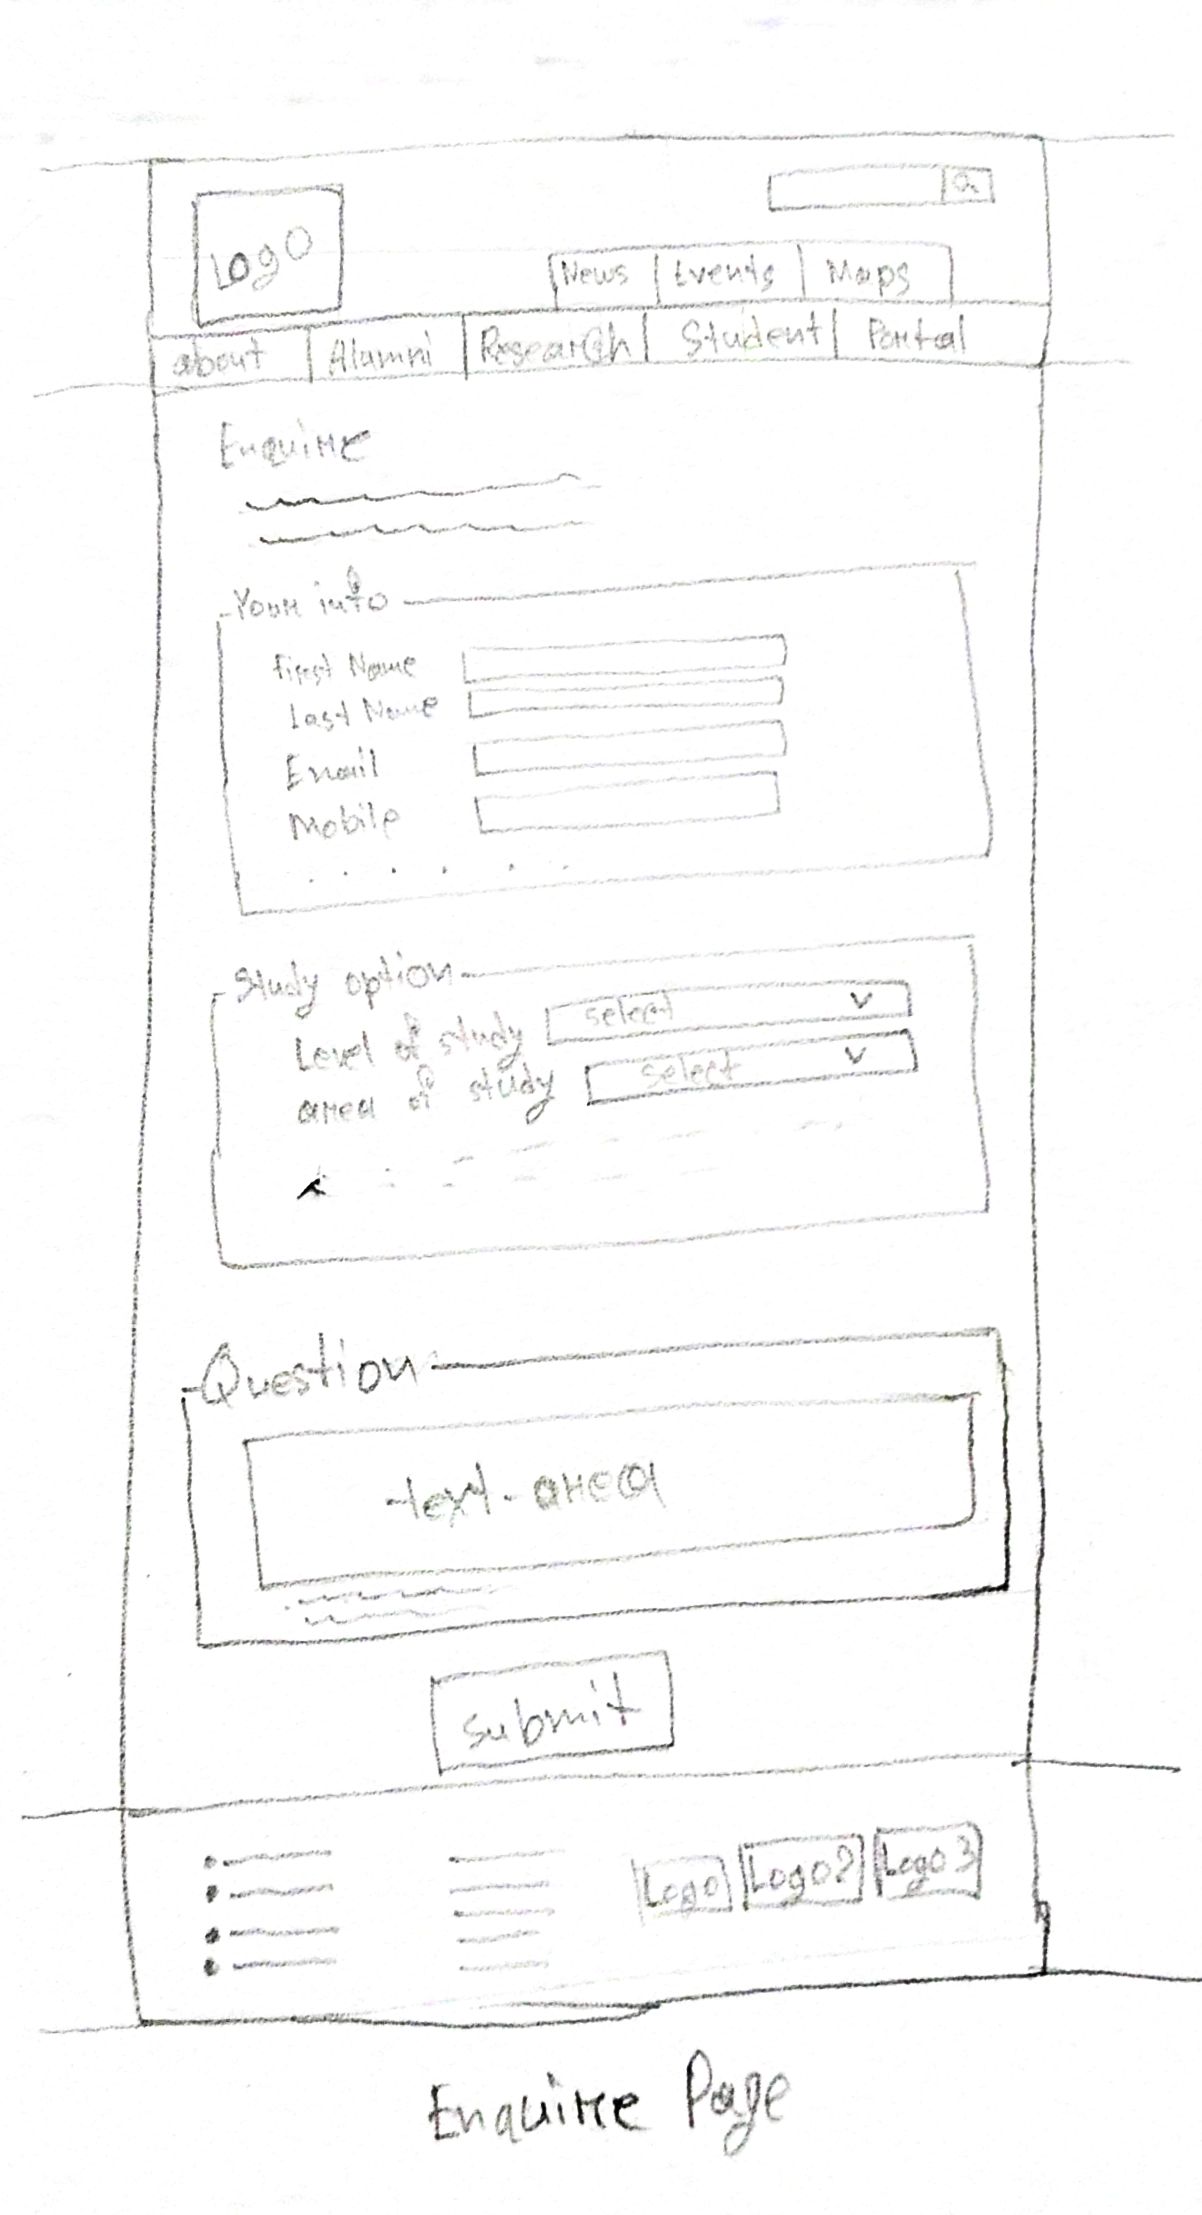 Logo
News Events Maps
about Alumni Research Student Portal
Enquire
Your info
First Name
Last Name
Email
Mobile
Study option
Level of study select
area of study select
Question
text-area
submit
Logo Logo2 Logo 3
Enquire Page